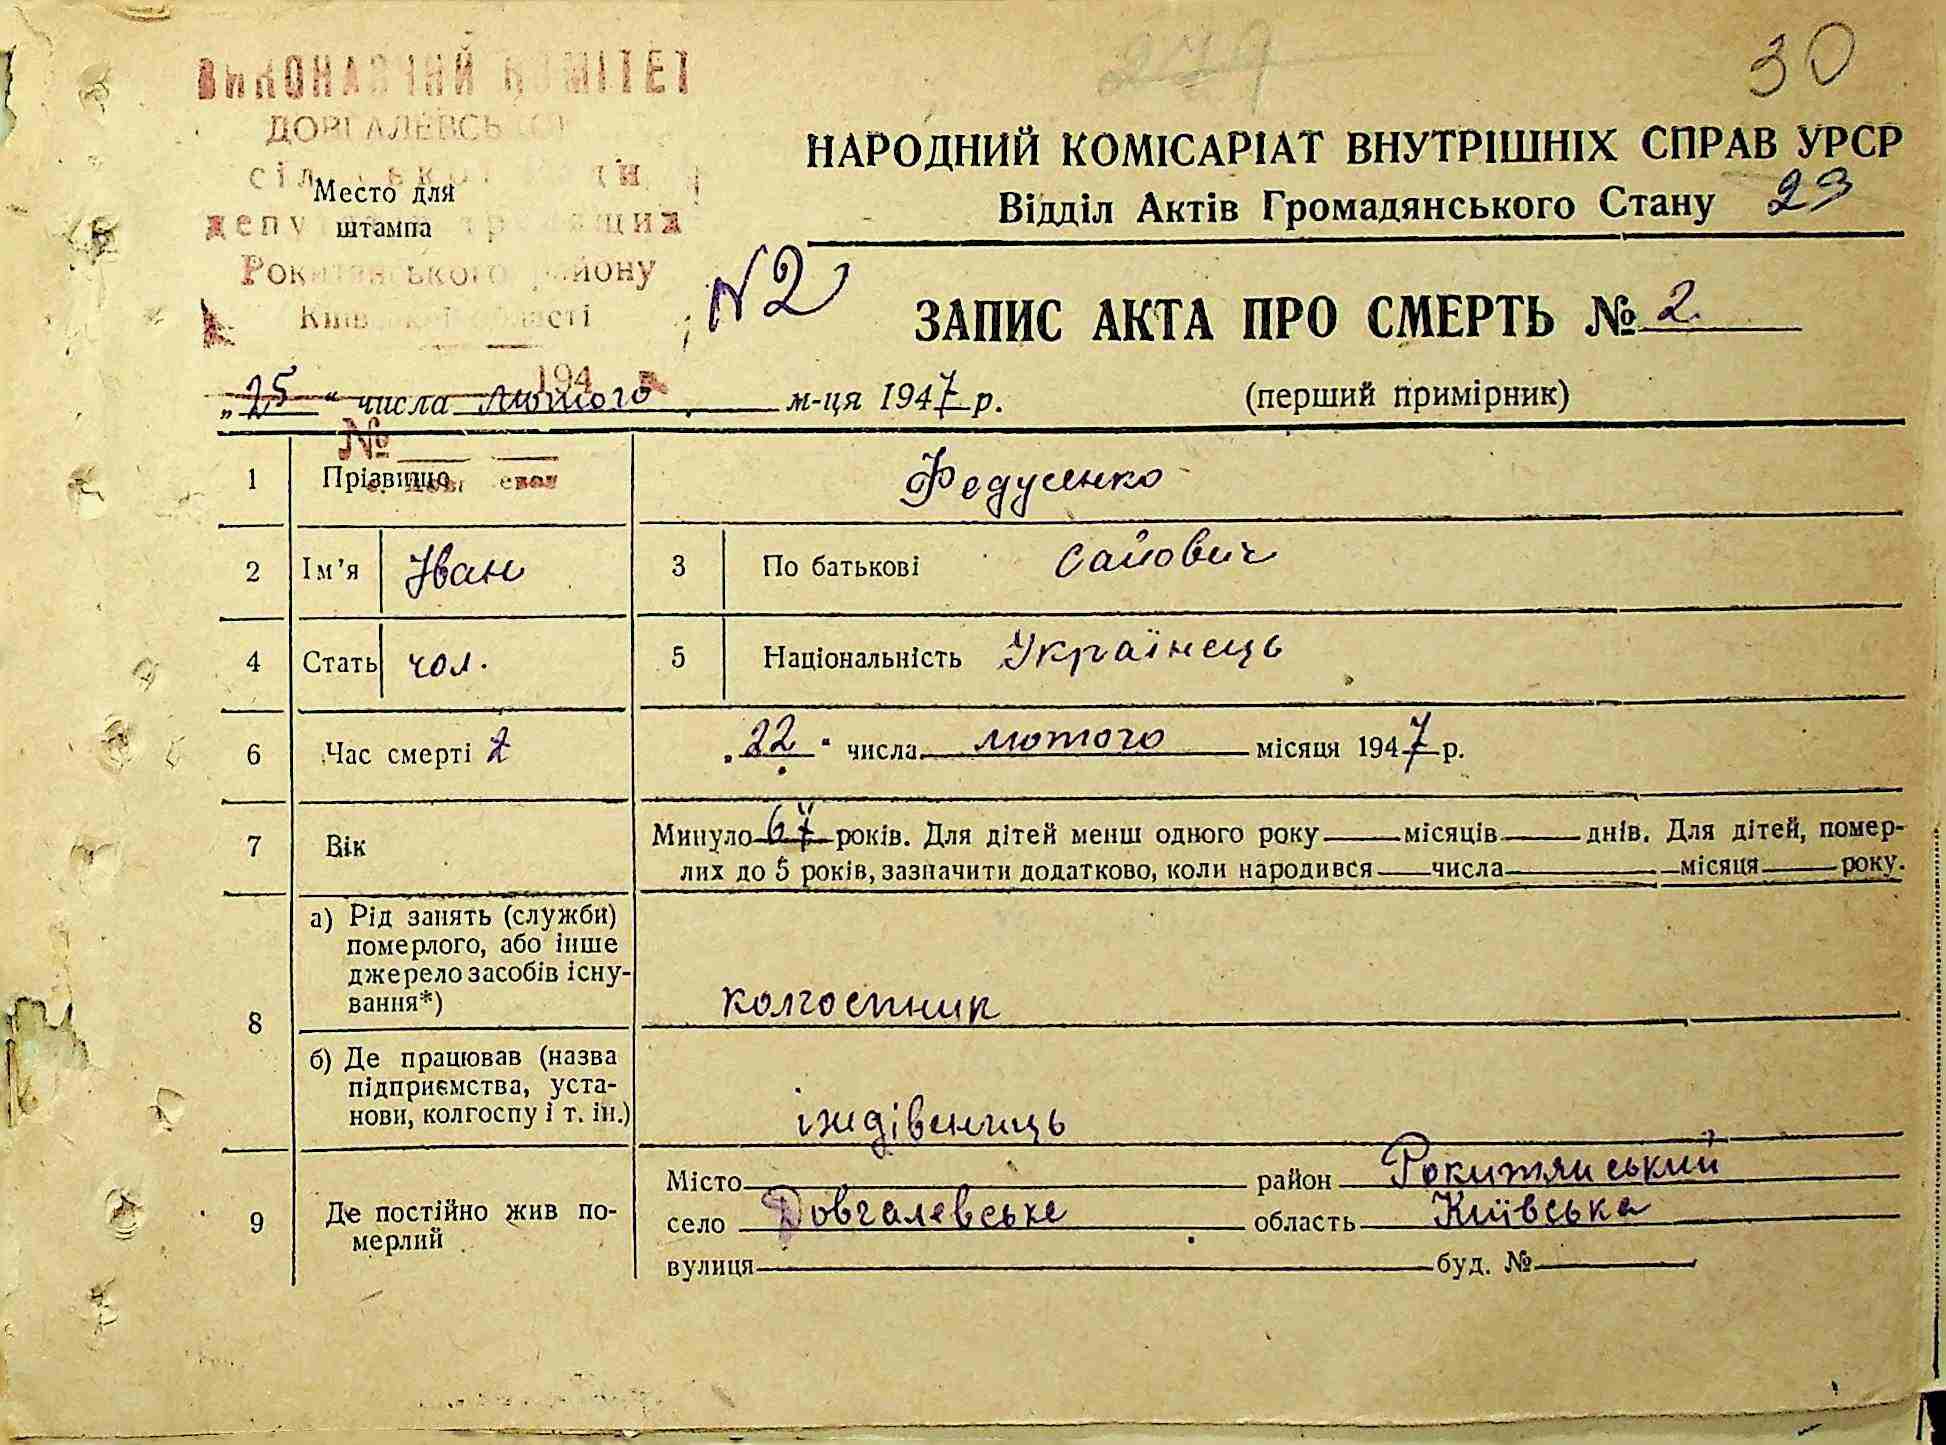 279
30
ВИКОНАВЧИЙ КОМІТЕТ
ДОВГАЛЕВСЬКОЇ
сільської Ради
депутатів трудящих
Рокитянського району
Київської області
194
№
Место для
штампа
НАРОДНИЙ КОМІСАРІАТ ВНУТРІШНІХ СПРАВ УРСР
Відділ Актів Громадянського Стану 29
N2
ЗАПИС АКТА ПРО СМЕРТЬ № 2.
„25“ числа лютого м-ця 1947 р. (перший примірник)
1 Прізвище Федусенко
2 Ім'я Іван 3 По батькові Сайович
4 Стать чол. 5 Національність Українець
6 Час смерті 2 „22“ числа лютого місяця 1947 р.
7 Вік Минуло 67 років. Для дітей менш одного року місяців днів. Для дітей, помер-
лих до 5 років, зазначити додатково, коли народився числа місяця року.
8 а) Рід занять (служби)
померлого, або інше
джерело засобів існу-
вання*) колгоспник
б) Де працював (назва
підприємства, уста-
нови, колгоспу і т. ін.) іждівенець
9 Де постійно жив по-
мерлий
Місто район Рокитянський
село Довгалевське область Київська
вулиця буд. №